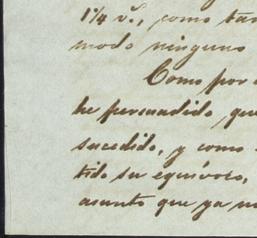 1¼ v.ˢ, como tam
modo ninguno
Como por
he persuadido, que
sucedido, y como
tido su equívoco,
asunto que ya